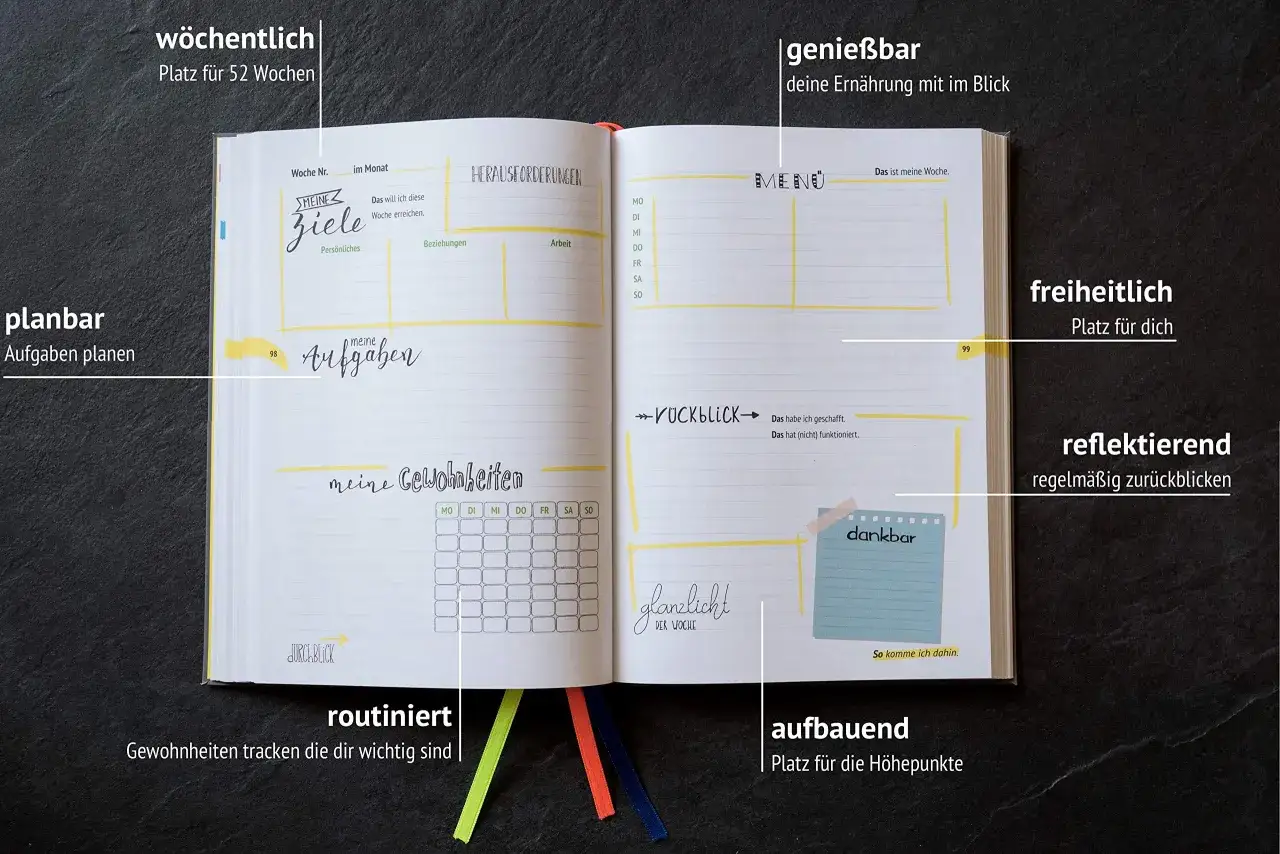 wöchentlich
Platz für 52 Wochen
genießbar
deine Ernährung mit im Blick
planbar
Aufgaben planen
freiheitlich
Platz für dich
reflektierend
regelmäßig zurückblicken
routiniert
Gewohnheiten tracken die dir wichtig sind
aufbauend
Platz für die Höhepunkte
Woche Nr. im Monat
HERAUSFORDERUNGEN
MEINE
Ziele
Das will ich diese
Woche erreichen.
Persönliches Beziehungen Arbeit
98
meine
Aufgaben
meine Gewohnheiten
MO DI MI DO FR SA SO
DURCHBLICK
MENÜ
Das ist meine Woche.
MO
DI
MI
DO
FR
SA
SO
99
RÜCKBLICK
Das habe ich geschafft.
Das hat (nicht) funktioniert.
dankbar
glanzlicht
DER WOCHE
So komme ich dahin.